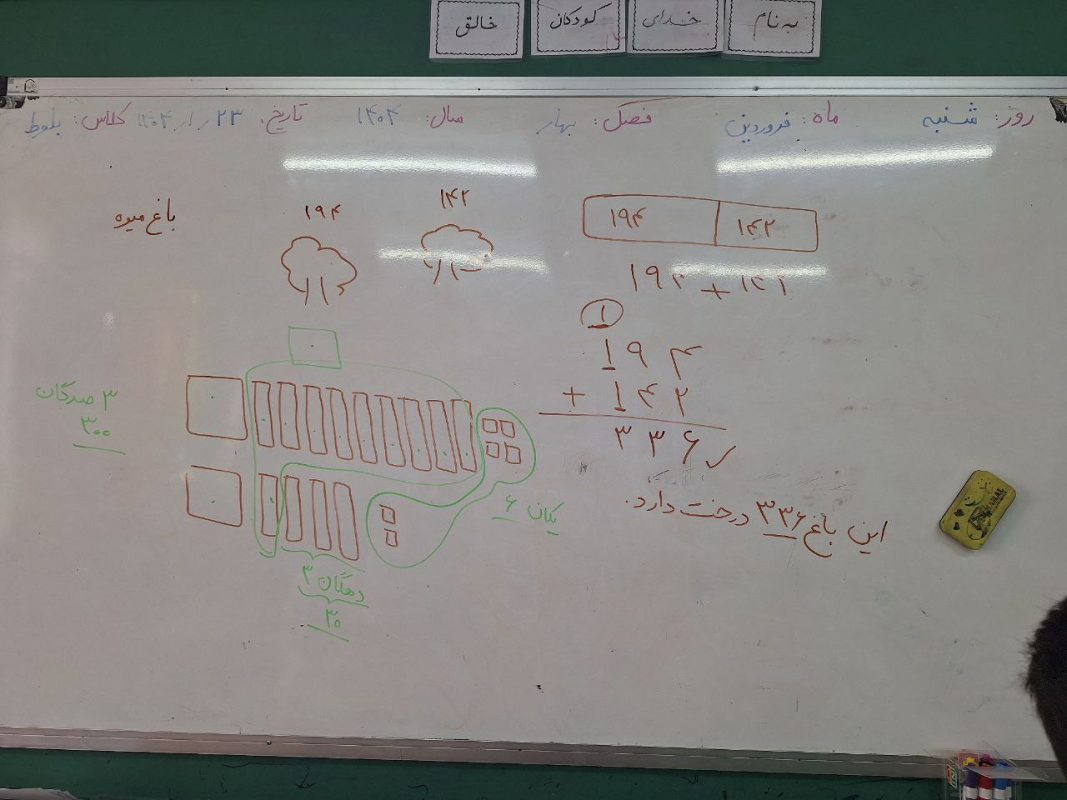 به نام خدای کودکان خالق
روز: شنبه ماه: فروردین فصل: بهار سال: ۱۴۰۴ تاریخ: ۲۳/۱/۱۴۰۴ کلاس: بلوط
باغ میوه
۱۹۴ ۱۴۲
۱۹۴ ۱۴۲
۱۹۴ + ۱۴۲
۱
۱۹۴
+ ۱۴۲
۳۳۶
این باغ ۳۳۶ درخت دارد.
۳ صدگان
۳۰۰
یکان ۶
دهگان ۳
۳۰